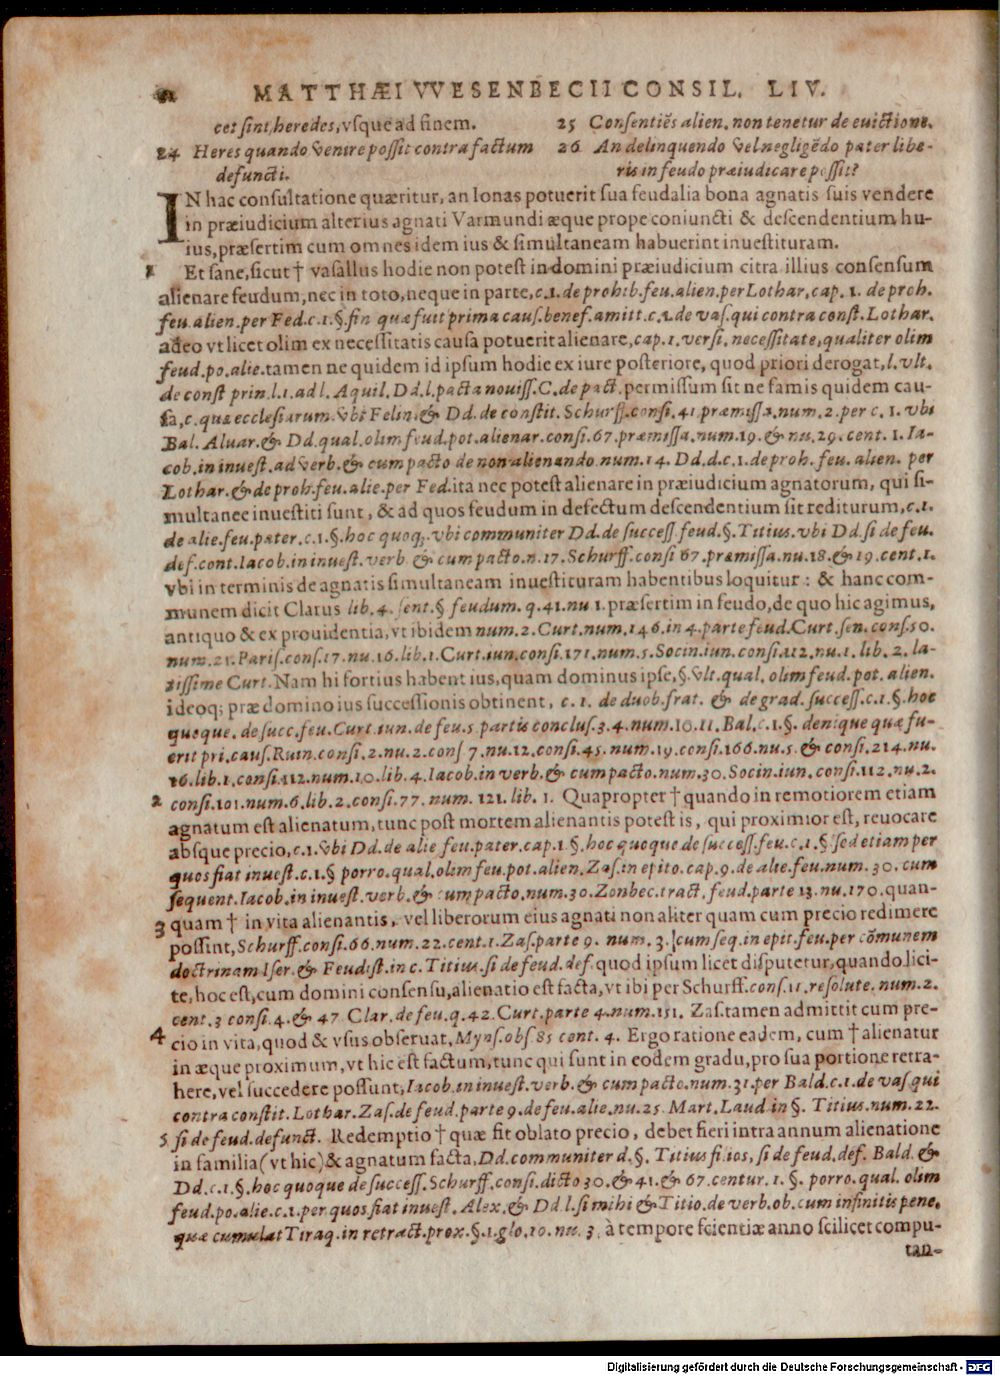 MATTHÆI VVESENBECII CONSIL. LIV.
cet sint heredes, vsque ad finem.
24 Heres quando venire possit contra factum
defuncti.
25 Consentiēs alien. non tenetur de euictione.
26 An delinquendo vel negligēdo pater libe-
ris in feudo præiudicare possit?
IN hac consultatione quæritur, an Ionas potuerit sua feudalia bona agnatis suis vendere
in præiudicium alterius agnati Varmundi æque prope coniuncti & descendentium hu-
ius, præsertim cum omnes idem ius & simultaneam habuerint inuestituram.
1 Et sane, sicut † vasallus hodie non potest in domini præiudicium citra illius consensum
alienare feudum, nec in toto, neque in parte, c. 1. de prohib. feu. alien. per Lothar. cap. 1. de proh.
feu. alien. per Fed. c. 1. §. fin quæ fuit prima caus. benef. amitt. c. 1. de vas. qui contra const. Lothar.
adeo vt licet olim ex necessitatis causa potuerit alienare, cap. 1. versi. necessitate, qualiter olim
feud. po. alie. tamen ne quidem id ipsum hodie ex iure posteriore, quod priori derogat, l. vlt.
de const prin. l. 1. ad l. Aquil. Dd. l. pacta nouiss. C. de pact. permissum sit ne famis quidem cau-
sa, c. quæ ecclesiarum. vbi Felin. & Dd. de constit. Schurff. consi. 41. præmissa. num. 2. per c. 1. vbi
Bal. Aluar. & Dd. qual. olim feud. pot. alienar. consi. 67. præmissa. num. 19. & nu. 29. cent. 1. Ia-
cob. in inuest. ad verb. & cum pacto de non alienando num. 14. Dd. d. c. 1. de proh. feu. alien. per
Lothar. & de proh. feu. alie. per Fed. ita nec potest alienare in præiudicium agnatorum, qui si-
multanee inuestiti sunt, & ad quos feudum in defectum descendentium sit rediturum, c. 1.
de alie. feu. pater. c. 1. §. hoc quoq; vbi communiter Dd. de success. feud. §. Titius. vbi Dd. si de feu.
def. cont. Iacob. in inuest. verb. & cum pacto. n. 17. Schurff. consi 67. præmissa. nu. 18. & 19. cent. 1.
vbi in terminis de agnatis simultaneam inuestituram habentibus loquitur: & hanc com-
munem dicit Clarus lib. 4. sent. § feudum. q. 41. nu 1. præsertim in feudo, de quo hic agimus,
antiquo & ex prouidentia, vt ibidem num. 2. Curt. num. 146. in 4. parte feud. Curt. sen. cons. 50.
num. 21. Paris. cons. 17. nu. 16. lib. 1. Curt. iun. consi. 171. num. 5. Socin. iun. consi. 112. nu. 1. lib. 2. la-
tissime Curt. Nam hi fortius habent ius, quam dominus ipse, §. vlt. qual. olim feud. pot. alien.
ideoq; præ domino ius successionis obtinent, c. 1. de duob. frat. & de grad. success. c. 1. §. hoc
quoque. de succ. feu. Curt. iun. de feu. 5. partis conclus. 3. 4. num. 10. 11. Bal. c. 1. §. denique quæ fu-
erit pri. caus. Ruin. consi. 2. nu. 2. cons 7. nu. 12. consi. 45. num. 19. consi. 166. nu. 5. & consi. 214. nu.
16. lib. 1. consi. 112. num. 10. lib. 4. Iacob. in verb. & cum pacto. num. 30. Socin. iun. consi. 112. nu. 2.
2 consi. 101. num. 6. lib. 2. consi. 77. num. 121. lib. 1. Quapropter † quando in remotiorem etiam
agnatum est alienatum, tunc post mortem alienantis potest is, qui proximior est, reuocare
absque precio, c. 1. vbi Dd. de alie feu. pater. cap. 1. §. hoc quoque de success. feu. c. 1. § sed etiam per
quos fiat inuest. c. 1. § porro. qual. olim feu. pot. alien. Zas. in epito. cap. 9. de alie. feu. num. 30. cum
sequent. Iacob. in inuest. verb. & cum pacto. num. 30. Zonbec. tract. feud. parte 13. nu. 170. quan-
3 quam † in vita alienantis, vel liberorum eius agnati non aliter quam cum precio redimere
possint, Schurff. consi. 66. num. 22. cent. 1. Zas. parte 9. num. 3. cum seq. in epit. feu. per cōmunem
doctrinam Iser. & Feudist. in c. Titius. si de feud. def. quod ipsum licet disputetur, quando lici-
te, hoc est, cum domini consensu, alienatio est facta, vt ibi per Schurff. cons. 11. resolute. num. 2.
cent. 3 consi. 4. & 47 Clar. de feu. q. 42. Curt. parte 4. num. 151. Zas. tamen admittit cum pre-
4 cio in vita, quod & vsus obseruat, Myns. obs. 85 cent. 4. Ergo ratione eadem, cum † alienatur
in æque proximum, vt hic est factum, tunc qui sunt in eodem gradu, pro sua portione retra-
here, vel succedere possunt, Iacob. in inuest. verb. & cum pacto. num. 31. per Bald. c. 1. de vas. qui
contra constit. Lothar. Zas. de feud. parte 9. de feu. alie. nu. 25. Mart. Laud. in §. Titius. num. 22.
5 si de feud. defunct. Redemptio † quæ fit oblato precio, debet fieri intra annum alienatione
in familia (vt hic) & agnatum facta, Dd. communiter d. §. Titius filios, si de feud. def. Bald. &
Dd. c. 1. §. hoc quoque de success. Schurff. consi. dicto 30. & 41. & 67. centur. 1. §. porro. qual. olim
feud. po. alie. c. 1. per quos fiat inuest. Alex. & Dd. l. si mihi & Titio. de verb. ob. cum infinitis pene,
quæ cumulat Tiraq. in retract. prox. §. 1. glo. 10. nu. 3. à tempore scientiæ anno scilicet compu-
tan-
Digitalisierung gefördert durch die Deutsche Forschungsgemeinschaft - DFG